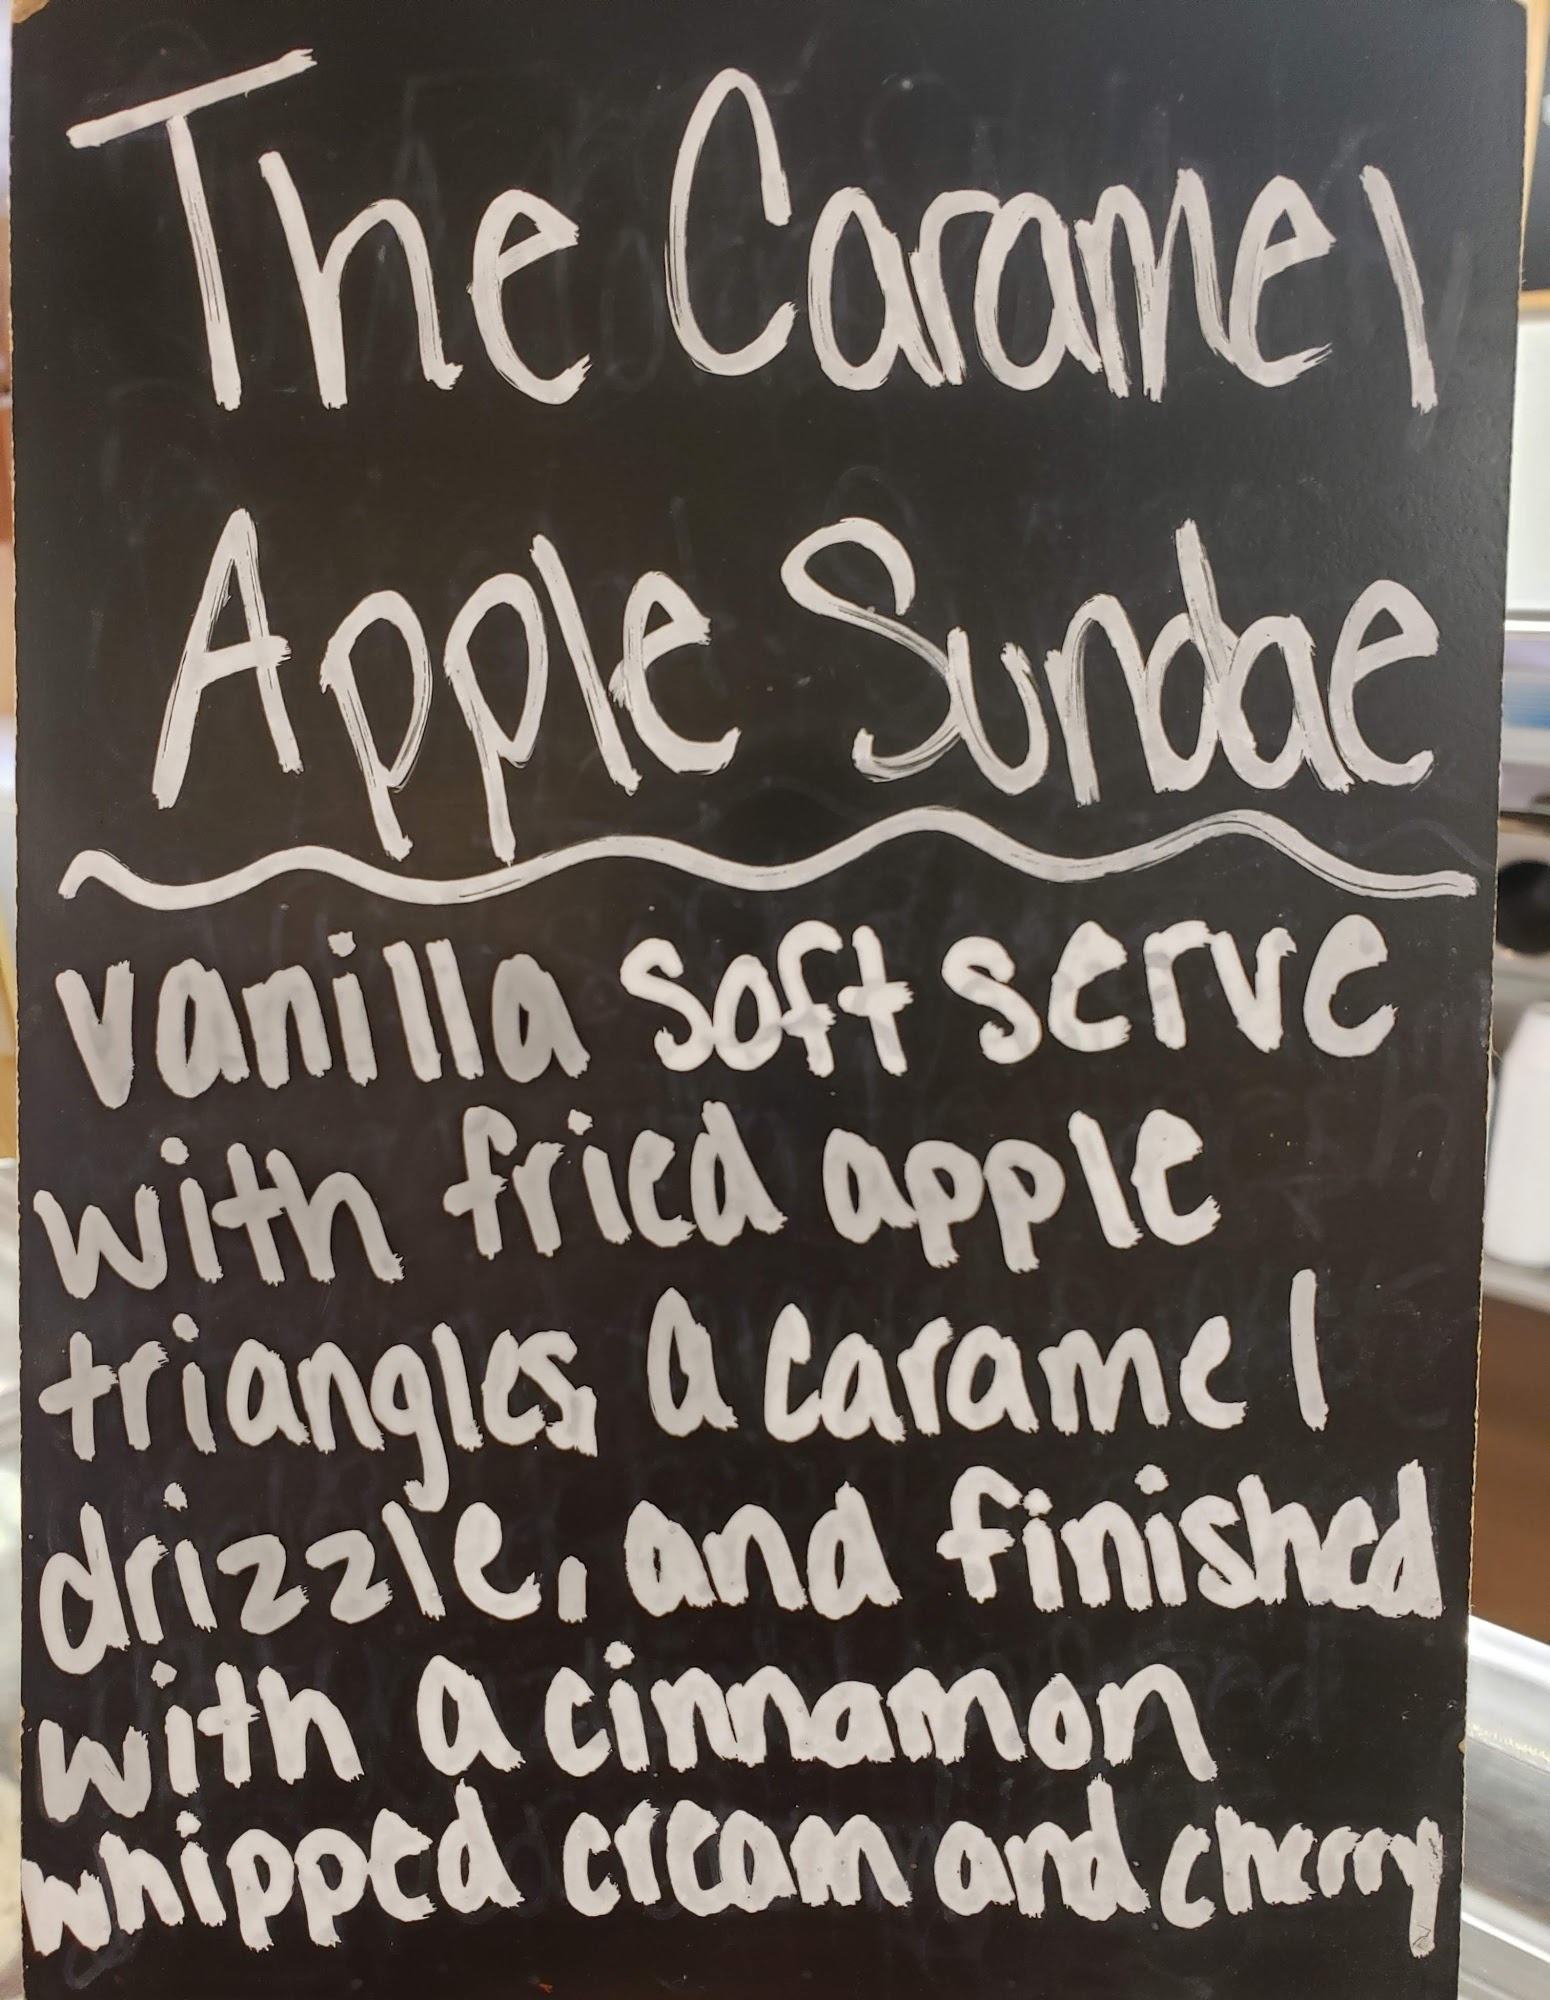 The Caramel
Apple Sundae
vanilla soft serve
with fried apple
triangles, a caramel
drizzle, and finished
with a cinnamon
whipped cream and cherry